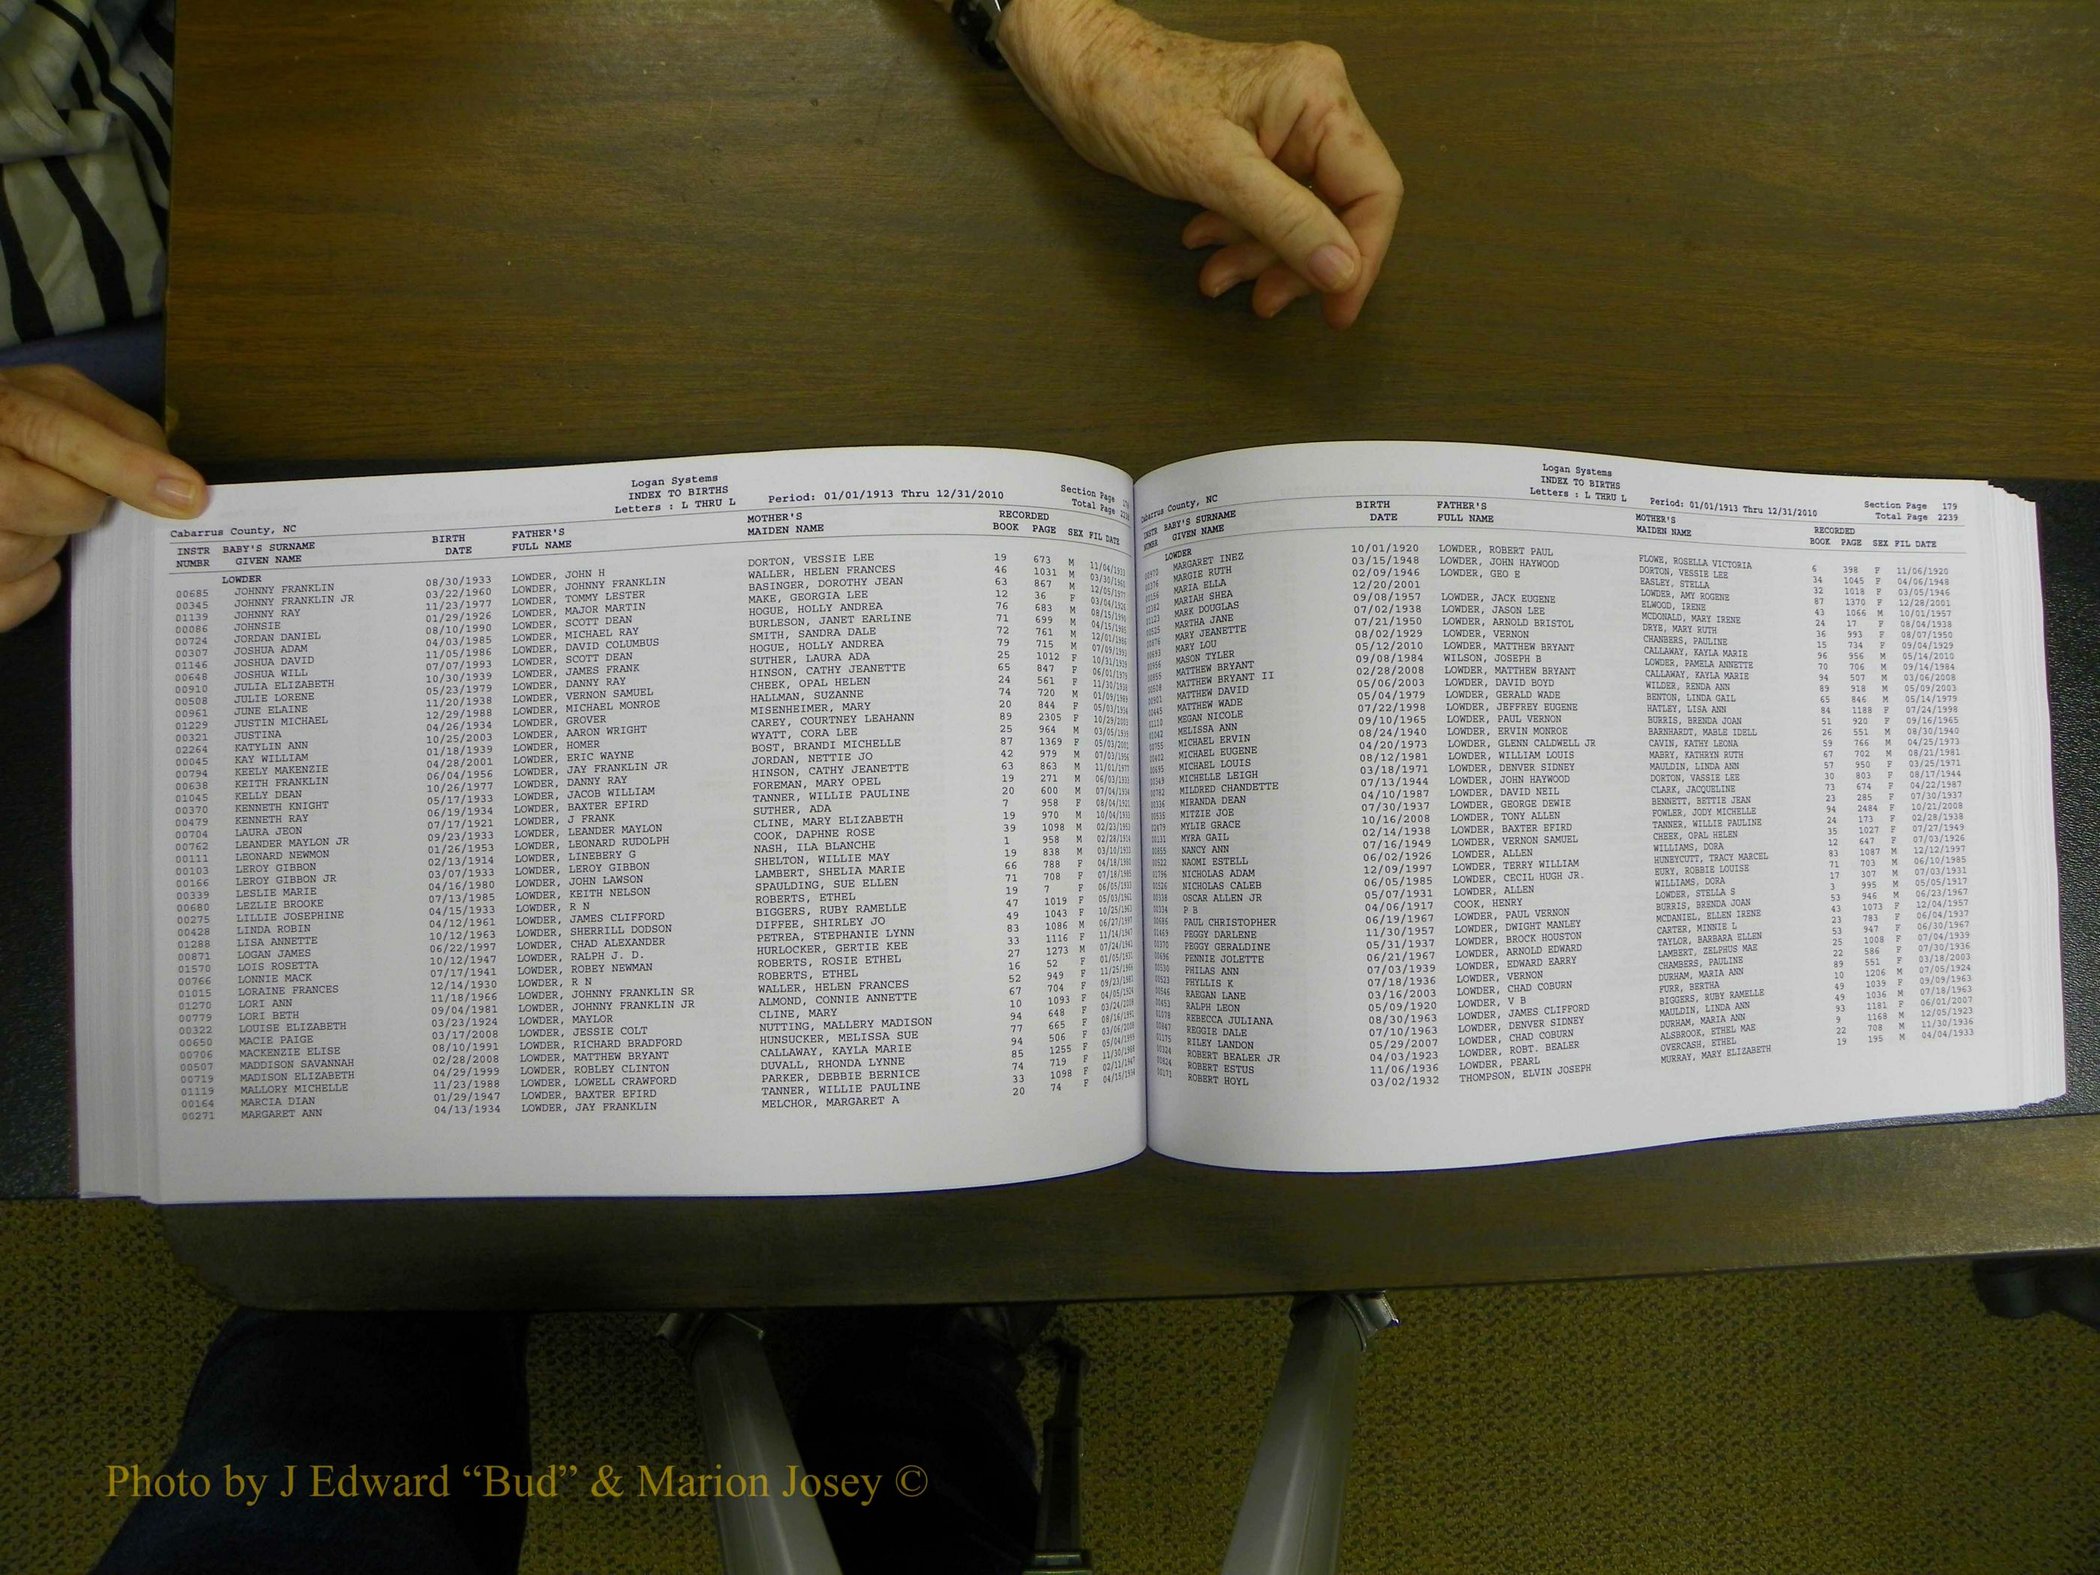 Logan Systems
INDEX TO BIRTHS
Letters : L THRU L Period: 01/01/1913 Thru 12/31/2010 Section Page
Cabarrus County, NC Total Page
INSTR BABY'S SURNAME BIRTH FATHER'S MOTHER'S RECORDED
NUMBR GIVEN NAME DATE FULL NAME MAIDEN NAME BOOK PAGE SEX FIL DATE
LOWDER
00685 JOHNNY FRANKLIN 08/30/1933 LOWDER, JOHN H DORTON, VESSIE LEE 19 673 M 11/04/1933
00345 JOHNNY FRANKLIN JR 03/22/1960 LOWDER, JOHNNY FRANKLIN WALLER, HELEN FRANCES 46 1031 M 03/30/1960
01139 JOHNNY RAY 11/23/1977 LOWDER, TOMMY LESTER BASINGER, DOROTHY JEAN 63 867 M 12/05/1977
00086 JOHNSIE 01/29/1926 LOWDER, MAJOR MARTIN MAKE, GEORGIA LEE 12 36 F 03/04/1926
00724 JORDAN DANIEL 08/10/1990 LOWDER, SCOTT DEAN HOGUE, HOLLY ANDREA 76 683 M 08/15/1990
00307 JOSHUA ADAM 04/03/1985 LOWDER, MICHAEL RAY BURLESON, JANET EARLINE 71 699 M 04/15/1985
01146 JOSHUA DAVID 11/05/1986 LOWDER, DAVID COLUMBUS SMITH, SANDRA DALE 72 761 M 12/01/1986
00648 JOSHUA WILL 07/07/1993 LOWDER, SCOTT DEAN HOGUE, HOLLY ANDREA 79 715 M 07/09/1993
00910 JULIA ELIZABETH 10/30/1939 LOWDER, JAMES FRANK SUTHER, LAURA ADA 25 1012 F 10/31/1939
00508 JULIE LORENE 05/23/1979 LOWDER, DANNY RAY HINSON, CATHY JEANETTE 65 847 F 06/01/1979
00961 JUNE ELAINE 11/20/1938 LOWDER, VERNON SAMUEL CHEEK, OPAL HELEN 24 561 F 11/30/1938
01229 JUSTIN MICHAEL 12/29/1988 LOWDER, MICHAEL MONROE HALLMAN, SUZANNE 74 720 M 01/09/1989
00321 JUSTINA 04/26/1934 LOWDER, GROVER MISENHEIMER, MARY 20 844 F 05/03/1934
02264 KATYLIN ANN 10/25/2003 LOWDER, AARON WRIGHT CAREY, COURTNEY LEAHANN 89 2305 F 10/29/2003
00045 KAY WILLIAM 01/18/1939 LOWDER, HOMER WYATT, CORA LEE 25 964 M 03/05/1939
00794 KEELY MAKENZIE 04/28/2001 LOWDER, ERIC WAYNE BOST, BRANDI MICHELLE 87 1369 F 05/03/2001
00638 KEITH FRANKLIN 06/04/1956 LOWDER, JAY FRANKLIN JR JORDAN, NETTIE JO 42 979 M 07/03/1956
01045 KELLY DEAN 10/26/1977 LOWDER, DANNY RAY HINSON, CATHY JEANETTE 63 863 M 11/01/1977
00370 KENNETH KNIGHT 05/17/1933 LOWDER, JACOB WILLIAM FOREMAN, MARY OPEL 19 271 M 06/03/1933
00479 KENNETH RAY 06/19/1934 LOWDER, BAXTER EFIRD TANNER, WILLIE PAULINE 20 600 M 07/04/1934
00704 LAURA JEON 07/17/1921 LOWDER, J FRANK SUTHER, ADA 7 958 F 08/04/1921
00762 LEANDER MAYLON JR 09/23/1933 LOWDER, LEANDER MAYLON CLINE, MARY ELIZABETH 19 970 M 10/04/1933
00111 LEONARD NEWMON 01/26/1953 LOWDER, LEONARD RUDOLPH COOK, DAPHNE ROSE 39 1098 M 02/23/1953
00103 LEROY GIBBON 02/13/1914 LOWDER, LINEBERY G NASH, ILA BLANCHE 1 958 M 02/28/1914
00166 LEROY GIBBON JR 03/07/1933 LOWDER, LEROY GIBBON SHELTON, WILLIE MAY 19 838 M 03/10/1933
00339 LESLIE MARIE 04/16/1980 LOWDER, JOHN LAWSON LAMBERT, SHELIA MARIE 66 788 F 04/18/1980
00680 LEZLIE BROOKE 07/13/1985 LOWDER, KEITH NELSON SPAULDING, SUE ELLEN 71 708 F 07/18/1985
00275 LILLIE JOSEPHINE 04/15/1933 LOWDER, R N ROBERTS, ETHEL 19 7 F 06/05/1933
00428 LINDA ROBIN 04/12/1961 LOWDER, JAMES CLIFFORD BIGGERS, RUBY RAMELLE 47 1019 F 05/03/1961
01288 LISA ANNETTE 10/12/1963 LOWDER, SHERRILL DODSON DIFFEE, SHIRLEY JO 49 1043 F 10/25/1963
00871 LOGAN JAMES 06/22/1997 LOWDER, CHAD ALEXANDER PETREA, STEPHANIE LYNN 83 1086 M 06/27/1997
01570 LOIS ROSETTA 10/12/1947 LOWDER, RALPH J. D. HURLOCKER, GERTIE KEE 33 1116 F 11/14/1947
00766 LONNIE MACK 07/17/1941 LOWDER, ROBEY NEWMAN ROBERTS, ROSIE ETHEL 27 1273 M 07/24/1941
01015 LORAINE FRANCES 12/14/1930 LOWDER, R N ROBERTS, ETHEL 16 52 F 01/05/1931
01270 LORI ANN 11/18/1966 LOWDER, JOHNNY FRANKLIN SR WALLER, HELEN FRANCES 52 949 F 11/25/1966
00779 LORI BETH 09/04/1981 LOWDER, JOHNNY FRANKLIN JR ALMOND, CONNIE ANNETTE 67 704 F 09/23/1981
00322 LOUISE ELIZABETH 03/23/1924 LOWDER, MAYLOR CLINE, MARY 10 1093 F 04/05/1924
00650 MACIE PAIGE 03/17/2008 LOWDER, JESSIE COLT NUTTING, MALLERY MADISON 94 648 F 03/24/2008
00706 MACKENZIE ELISE 08/10/1991 LOWDER, RICHARD BRADFORD HUNSUCKER, MELISSA SUE 77 665 F 08/16/1991
00507 MADDISON SAVANNAH 02/28/2008 LOWDER, MATTHEW BRYANT CALLAWAY, KAYLA MARIE 94 506 F 03/06/2008
00719 MADISON ELIZABETH 04/29/1999 LOWDER, ROBLEY CLINTON DUVALL, RHONDA LYNNE 85 1255 F 05/04/1999
01119 MALLORY MICHELLE 11/23/1988 LOWDER, LOWELL CRAWFORD PARKER, DEBBIE BERNICE 74 719 F 11/30/1988
00164 MARCIA DIAN 01/29/1947 LOWDER, BAXTER EFIRD TANNER, WILLIE PAULINE 33 1098 F 02/11/1947
00271 MARGARET ANN 04/13/1934 LOWDER, JAY FRANKLIN MELCHOR, MARGARET A 20 74 F 04/15/1934
Logan Systems
INDEX TO BIRTHS
Letters : L THRU L Period: 01/01/1913 Thru 12/31/2010 Section Page 179
Cabarrus County, NC Total Page 2239
INSTR BABY'S SURNAME BIRTH FATHER'S MOTHER'S RECORDED
NUMBR GIVEN NAME DATE FULL NAME MAIDEN NAME BOOK PAGE SEX FIL DATE
LOWDER
00970 MARGARET INEZ 10/01/1920 LOWDER, ROBERT PAUL FLOWE, ROSELLA VICTORIA 6 398 F 11/06/1920
00376 MARGIE RUTH 03/15/1948 LOWDER, JOHN HAYWOOD DORTON, VESSIE LEE 34 1045 F 04/06/1948
00156 MARIA ELLA 02/09/1946 LOWDER, GEO E EASLEY, STELLA 32 1018 F 03/05/1946
02382 MARIAH SHEA 12/20/2001 LOWDER, AMY ROGENE 87 1370 F 12/28/2001
01123 MARK DOUGLAS 09/08/1957 LOWDER, JACK EUGENE ELWOOD, IRENE 43 1066 M 10/01/1957
00525 MARTHA JANE 07/02/1938 LOWDER, JASON LEE MCDONALD, MARY IRENE 24 17 F 08/04/1938
00876 MARY JEANETTE 07/21/1950 LOWDER, ARNOLD BRISTOL DRYE, MARY RUTH 36 993 F 08/07/1950
00693 MARY LOU 08/02/1929 LOWDER, VERNON CHANBERS, PAULINE 15 734 F 09/04/1929
00956 MASON TYLER 05/12/2010 LOWDER, MATTHEW BRYANT CALLAWAY, KAYLA MARIE 96 956 M 05/14/2010
00855 MATTHEW BRYANT 09/08/1984 WILSON, JOSEPH B LOWDER, PAMELA ANNETTE 70 706 M 09/14/1984
00508 MATTHEW BRYANT II 02/28/2008 LOWDER, MATTHEW BRYANT CALLAWAY, KAYLA MARIE 94 507 M 03/06/2008
00901 MATTHEW DAVID 05/06/2003 LOWDER, DAVID BOYD WILDER, RENDA ANN 89 918 M 05/09/2003
00445 MATTHEW WADE 05/04/1979 LOWDER, GERALD WADE BENTON, LINDA GAIL 65 846 M 05/14/1979
01110 MEGAN NICOLE 07/22/1998 LOWDER, JEFFREY EUGENE HATLEY, LISA ANN 84 1188 F 07/24/1998
01042 MELISSA ANN 09/10/1965 LOWDER, PAUL VERNON BURRIS, BRENDA JOAN 51 920 F 09/16/1965
00755 MICHAEL ERVIN 08/24/1940 LOWDER, ERVIN MONROE BARNHARDT, MABLE IDELL 26 551 M 08/30/1940
00402 MICHAEL EUGENE 04/20/1973 LOWDER, GLENN CALDWELL JR CAVIN, KATHY LEONA 59 766 M 04/25/1973
00695 MICHAEL LOUIS 08/12/1981 LOWDER, WILLIAM LOUIS MABRY, KATHRYN RUTH 67 702 M 08/21/1981
00349 MICHELLE LEIGH 03/18/1971 LOWDER, DENVER SIDNEY MAULDIN, LINDA ANN 57 950 F 03/25/1971
00782 MILDRED CHANDETTE 07/13/1944 LOWDER, JOHN HAYWOOD DORTON, VASSIE LEE 30 803 F 08/17/1944
00336 MIRANDA DEAN 04/10/1987 LOWDER, DAVID NEIL CLARK, JACQUELINE 73 674 F 04/22/1987
00535 MITZIE JOE 07/30/1937 LOWDER, GEORGE DEWIE BENNETT, BETTIE JEAN 23 285 F 07/30/1937
02479 MYLIE GRACE 10/16/2008 LOWDER, TONY ALLEN FOWLER, JODY MICHELLE 94 2484 F 10/21/2008
00131 MYRA GAIL 02/14/1938 LOWDER, BAXTER EFIRD TANNER, WILLIE PAULINE 24 173 F 02/28/1938
00855 NANCY ANN 07/16/1949 LOWDER, VERNON SAMUEL CHEEK, OPAL HELEN 35 1027 F 07/27/1949
00522 NAOMI ESTELL 06/02/1926 LOWDER, ALLEN WILLIAMS, DORA 12 647 F 07/03/1926
01796 NICHOLAS ADAM 12/09/1997 LOWDER, TERRY WILLIAM HUNEYCUTT, TRACY MARCEL 83 1087 M 12/12/1997
00526 NICHOLAS CALEB 06/05/1985 LOWDER, CECIL HUGH JR. EURY, ROBBIE LOUISE 71 703 M 06/10/1985
00338 OSCAR ALLEN JR 05/07/1931 LOWDER, ALLEN WILLIAMS, DORA 17 307 M 07/03/1931
00334 P B 04/06/1917 COOK, HENRY LOWDER, STELLA S 3 995 M 05/05/1917
00686 PAUL CHRISTOPHER 06/19/1967 LOWDER, PAUL VERNON BURRIS, BRENDA JOAN 53 946 M 06/23/1967
01469 PEGGY DARLENE 11/30/1957 LOWDER, DWIGHT MANLEY MCDANIEL, ELLEN IRENE 43 1073 F 12/04/1957
00370 PEGGY GERALDINE 05/31/1937 LOWDER, BROCK HOUSTON CARTER, MINNIE L 23 783 F 06/04/1937
00696 PENNIE JOLETTE 06/21/1967 LOWDER, ARNOLD EDWARD TAYLOR, BARBARA ELLEN 53 947 F 06/30/1967
00530 PHILAS ANN 07/03/1939 LOWDER, EDWARD EARRY LAMBERT, ZELPHUS MAE 25 1008 F 07/04/1939
00523 PHYLLIS K 07/18/1936 LOWDER, VERNON CHAMBERS, PAULINE 22 586 F 07/30/1936
00546 RAEGAN LANE 03/16/2003 LOWDER, CHAD COBURN DURHAM, MARIA ANN 89 551 F 03/18/2003
00453 RALPH LEON 05/09/1920 LOWDER, V B FURR, BERTHA 10 1206 M 07/05/1924
01078 REBECCA JULIANA 08/30/1963 LOWDER, JAMES CLIFFORD BIGGERS, RUBY RAMELLE 49 1039 F 09/09/1963
00847 REGGIE DALE 07/10/1963 LOWDER, DENVER SIDNEY MAULDIN, LINDA ANN 49 1036 M 07/18/1963
01175 RILEY LANDON 05/29/2007 LOWDER, CHAD COBURN DURHAM, MARIA ANN 93 1181 F 06/01/2007
00324 ROBERT BEALER JR 04/03/1923 LOWDER, ROBT. BEALER ALSBROOK, ETHEL MAE 9 1168 M 12/05/1923
00824 ROBERT ESTUS 11/06/1936 LOWDER, PEARL OVERCASH, ETHEL 22 708 M 11/30/1936
00171 ROBERT HOYL 03/02/1932 THOMPSON, ELVIN JOSEPH MURRAY, MARY ELIZABETH 19 195 M 04/04/1933
Photo by J Edward “Bud” & Marion Josey ©